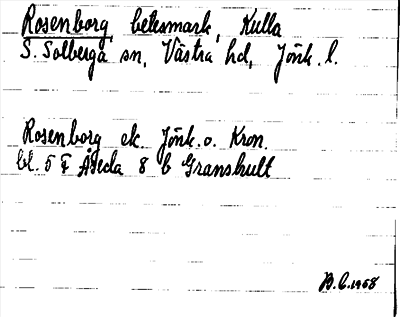 Rosenborg, betesmark, Kulla
S. Solberga sn, Västra hd, Jönk. l.
Rosenborg ek. Jönk. o. Kron.
bl. 5 F Åseda 8 b Granshult
B.C. 1958